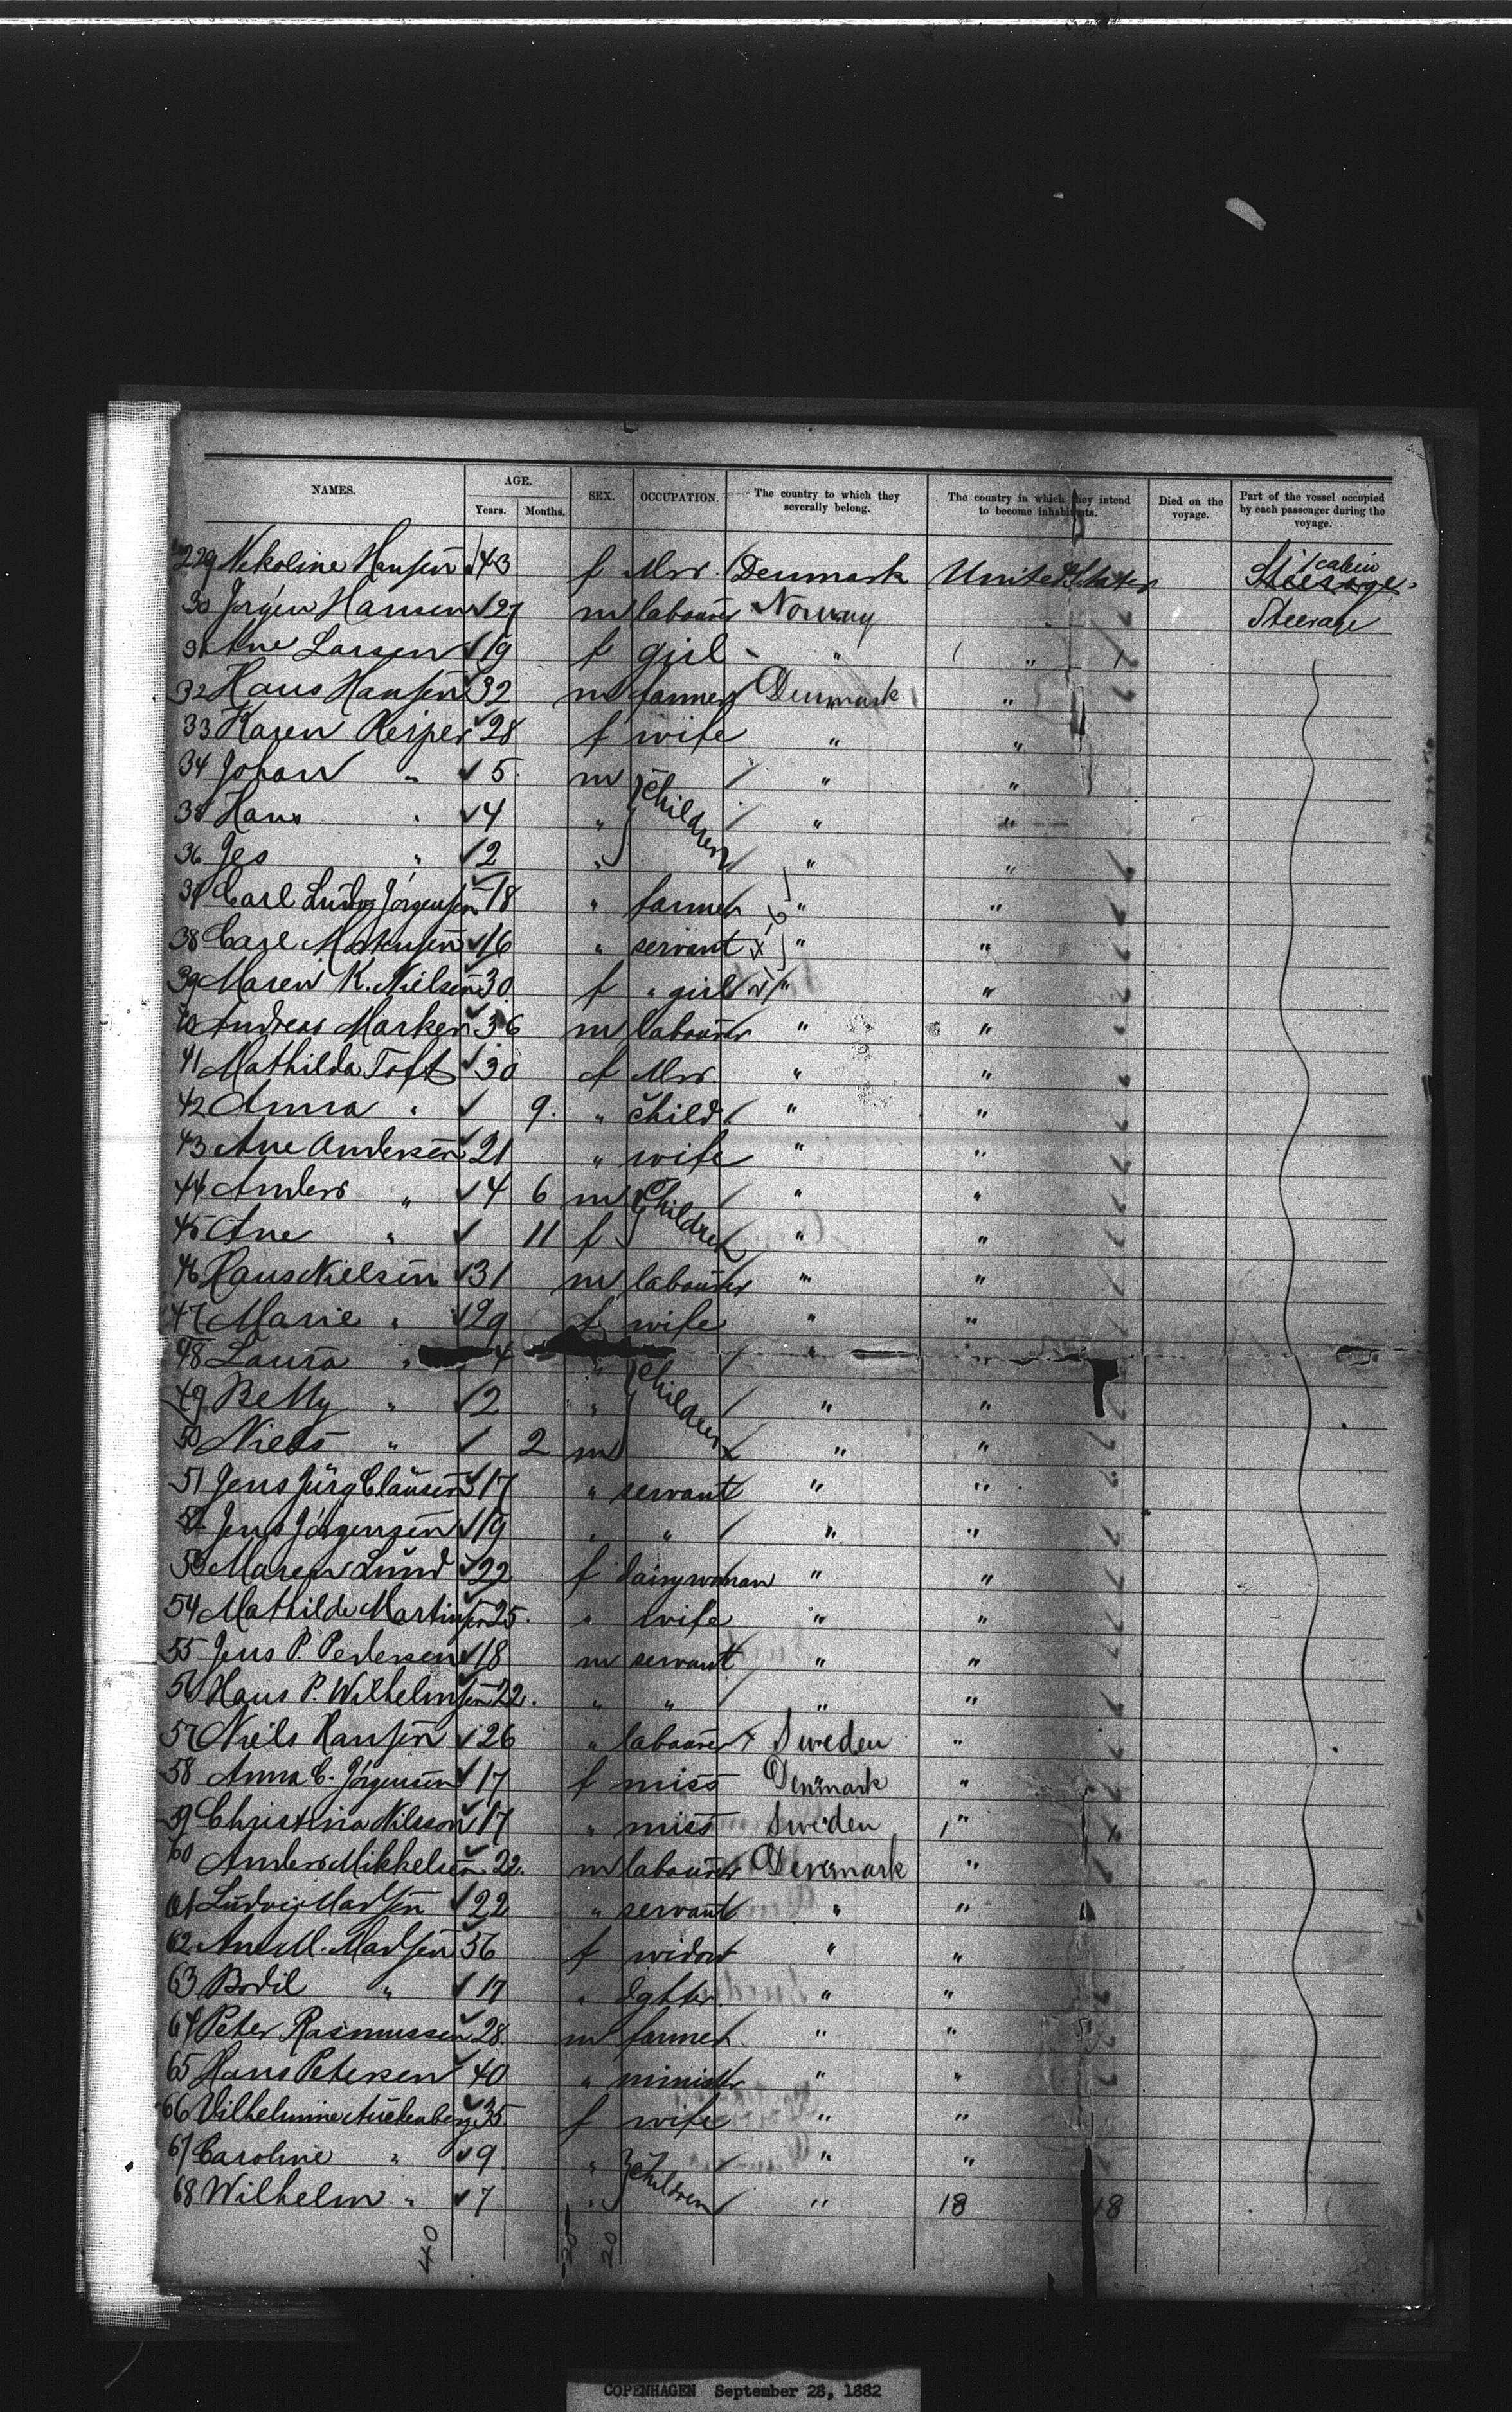 NAMES. AGE. SEX. OCCUPATION. The country to which they severally belong. The country in which they intend to become inhabitants. Died on the voyage. Part of the vessel occupied by each passenger during the voyage.
Years. Months.
229 Nekoline Hansen 43 f Mrs. Denmark United States 1 cabin Steerage
30 Jorgen Hansen 27 m labourer Norway " Steerage
31 Ane Larsen 19 f girl " "
32 Hans Hansen 32 m farmer Denmark "
33 Karen Resper 28 f wife " "
34 Johan " 5 m children " "
35 Hans " 4 " " "
36 Jes " 2 " " "
37 Carl Ludvg Jörgensen 18 " farmer " "
38 Carl 16 " servant " "
39 Maren K. Nielsen 30 f " girl " "
40 Andreas Marken 36 m labourer " "
41 Mathilda Toft 30 f Mrs. " "
42 Anna " 9. " child " "
43 Ane Andersen 21 " wife " "
44 Anders " 4 6 m Children " "
45 Ane " 11 f " "
46 Hans Nielsen 31 m labourer " "
47 Marie " 29 f wife " "
48 Laura " 4 " children "
49 Betty " 2 " " "
50 Niels " 2 m " "
51 Jens Jürg Clausen 17 " servant " "
52 Jens Jörgensen 19 " " " "
53 Maren Lund 22 f dairywoman " "
54 Mathilde Martinsen 25. " wife " "
55 Jens P. Pedersen 18 m servant " "
56 Hans P. Wilhelmsen 22. " " " "
57 Niels Hansen 26 " labourer Sweden "
58 Anna C. Jörgensen 17 f miss Denmark "
59 Christina Nilsson 17 " miss Sweden "
60 Anders Mikkelsen 22. m labourer Denmark "
61 Ludvig Madsen 22 " servant " "
62 Ane M. Madsen 56 f widow " "
63 Bodil " 17 " dghter. " "
64 Peter Rasmussen 28. m farmer " "
65 Hans Petersen 40 " minister " "
66 Vilhelmine 35 f wife " "
67 Caroline " 9 " Children " "
68 Wilhelm " 7 " " 18 18
40 20 20
COPENHAGEN September 28, 1882